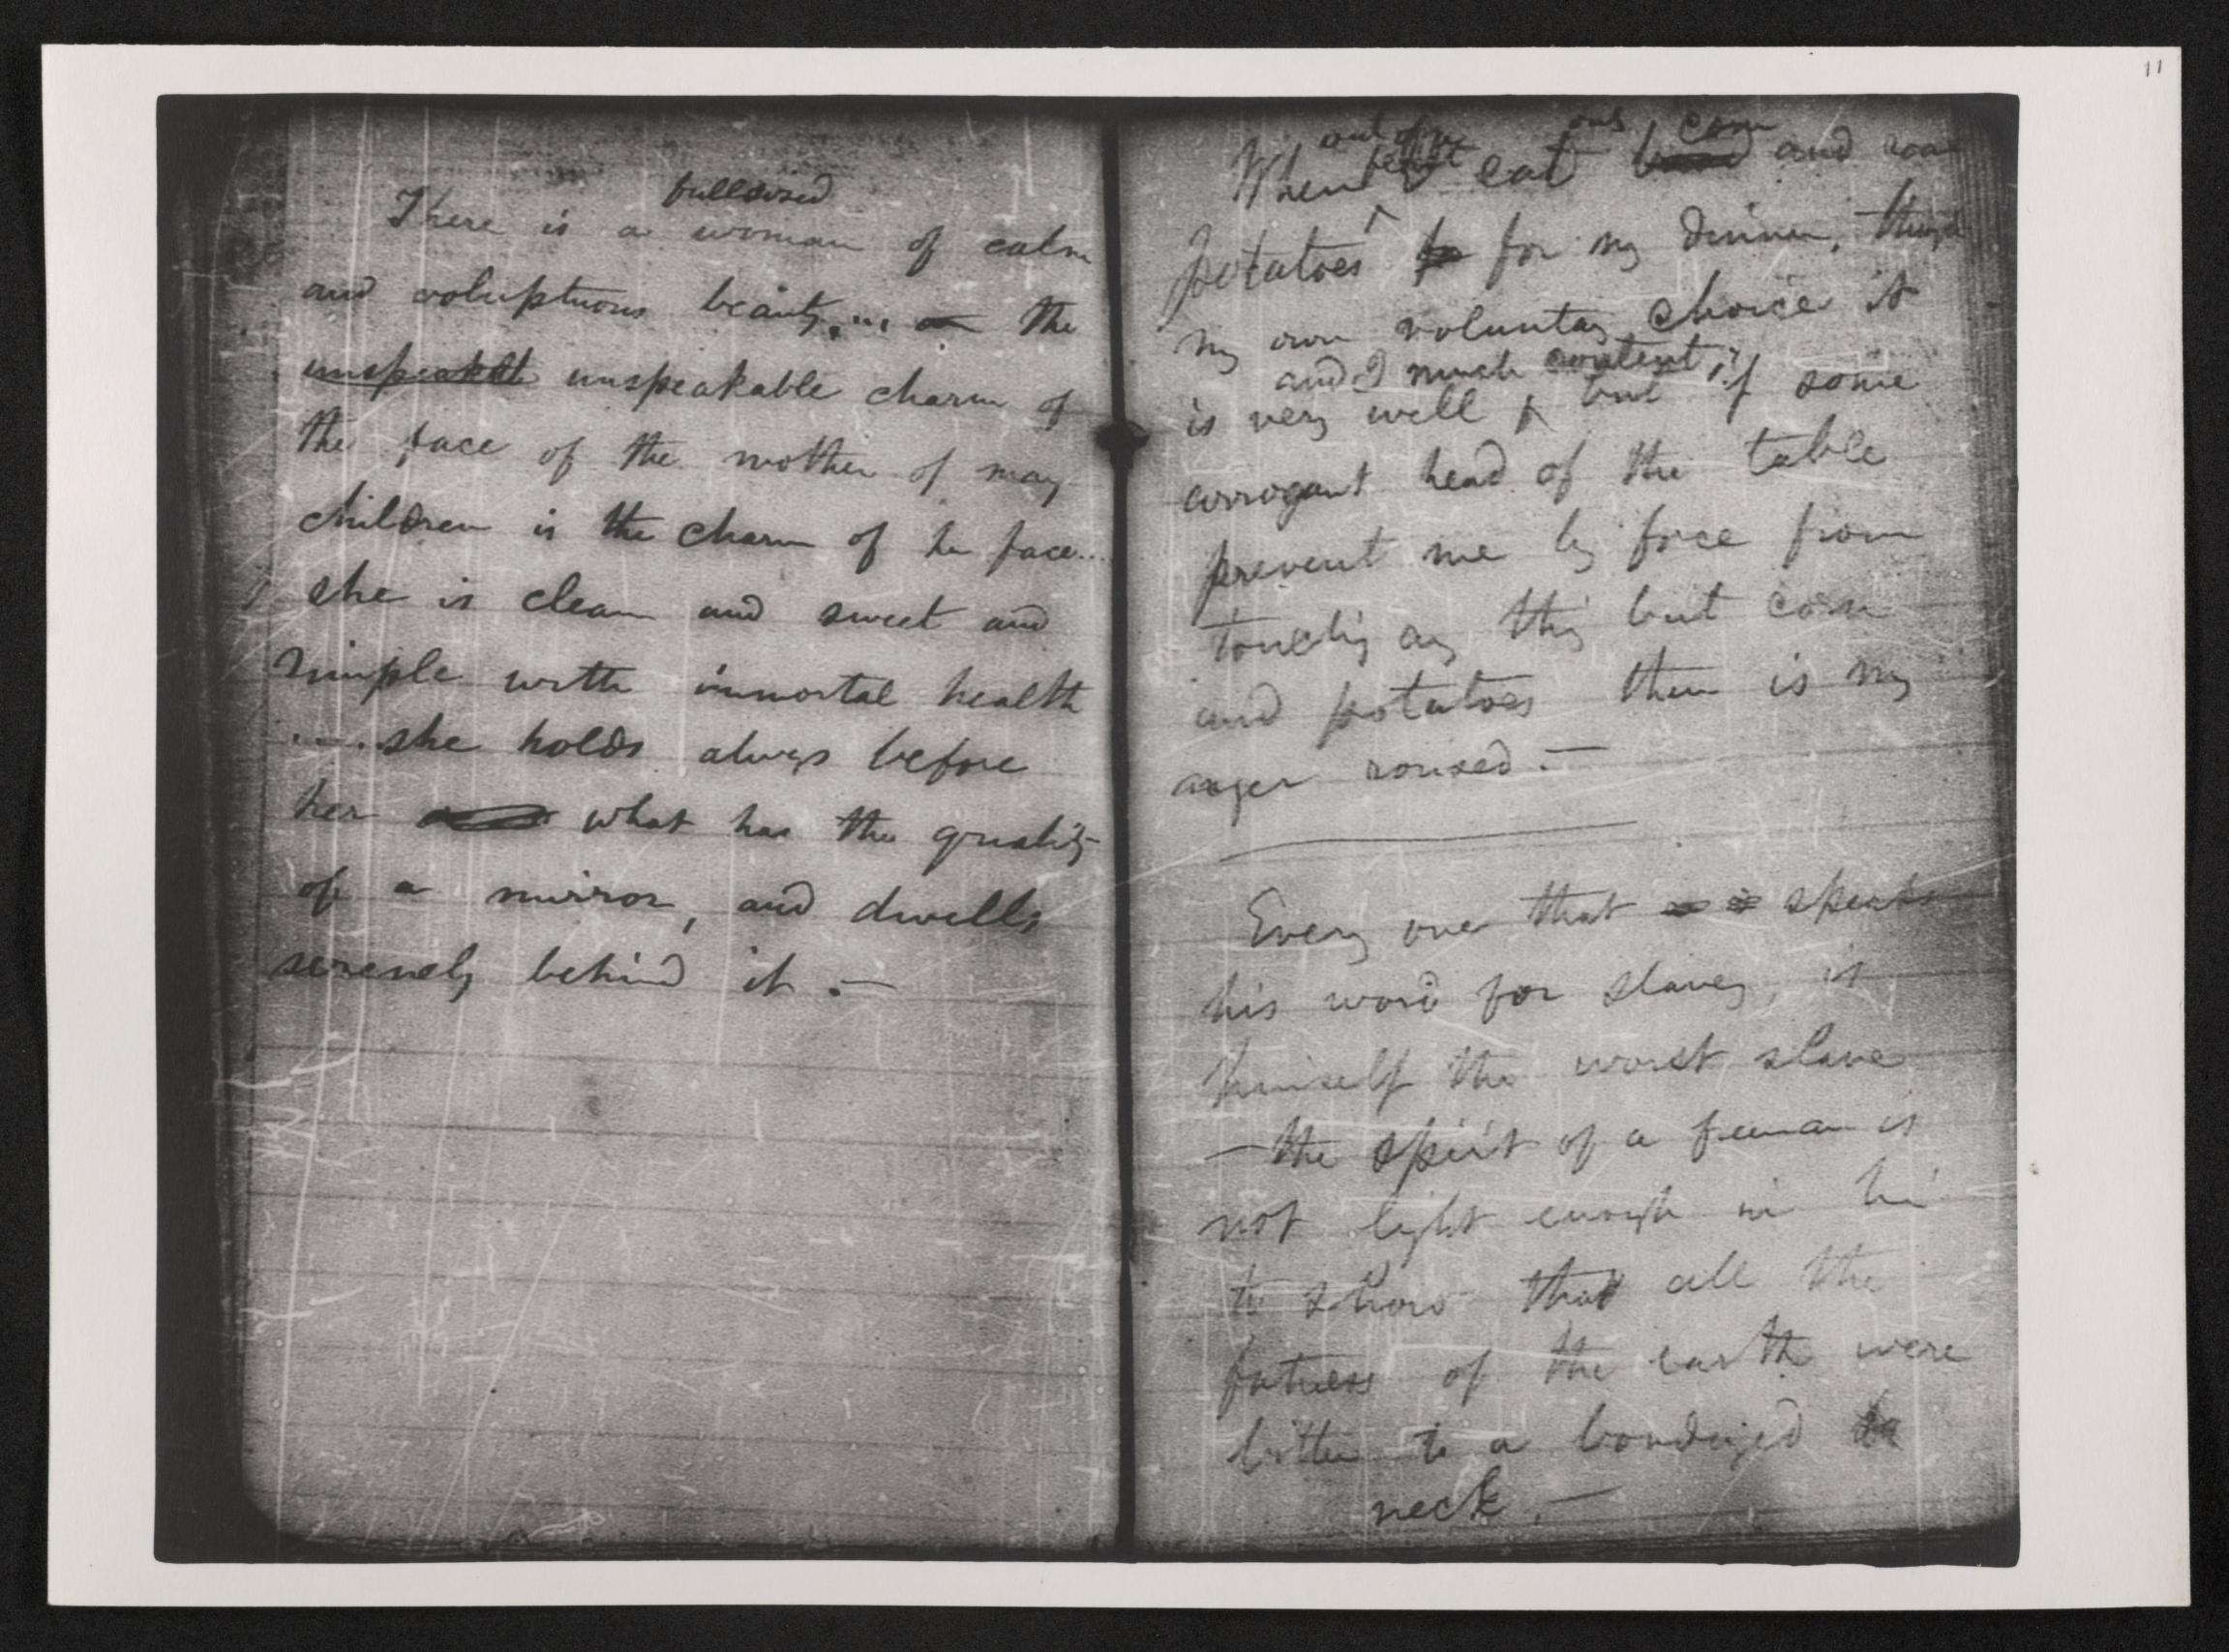 11
fullsized
There is a woman of calm
and voluptuous beauty.... the
unspeakable unspeakable charm of
the face of the mother of many
children is the charm of her face...
she is clean and sweet and
simple with immortal health
....she holds always before
her what has the quality
of a mirror, and dwells
serenely behind it.—
out of my corn
When I eat and roast
potatoes for my dinner, through
my own voluntary choice it
and I much content,
is very well, but if some
arrogant head of the table
prevent me by force from
touching any thing but corn
and potatoes then is my
anger roused.—
Every one that speaks
his word for slavery, is
himself the worst slave
—the spirit of a freeman is
not light enough in him
to show that all the
fatness of the earth were
bitter to a bondaged
neck.—